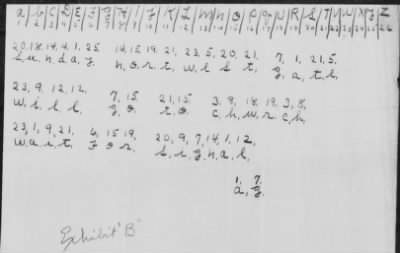 a b C D E F G H I J K L m n O P q u R S T V W X y Z
1 2 3 4 5 6 7 8 9 10 11 12 13 14 15 16 17 18 19 20 21 22 23 24 25 26
20.18.14.4.1.25. 14,15,19,21, 23,5,20,21, 7,1,21,5.
S,u,n,d,a,y. n,o,r,t, w,e,s,t, g,a,t,e,
23,9,12,12, 7,15. 21,15. 3,8,18,19,3,8,
w,i,l,l, g,o. t,o. c,h,u,r,c,h,
23,1,9,21. 6,15,19, 20,9,7,14,1,12,
w,a,i,t, F,o,r. s,i,g,n,a,l,
1. 7.
a, g.
Exhibit "B"